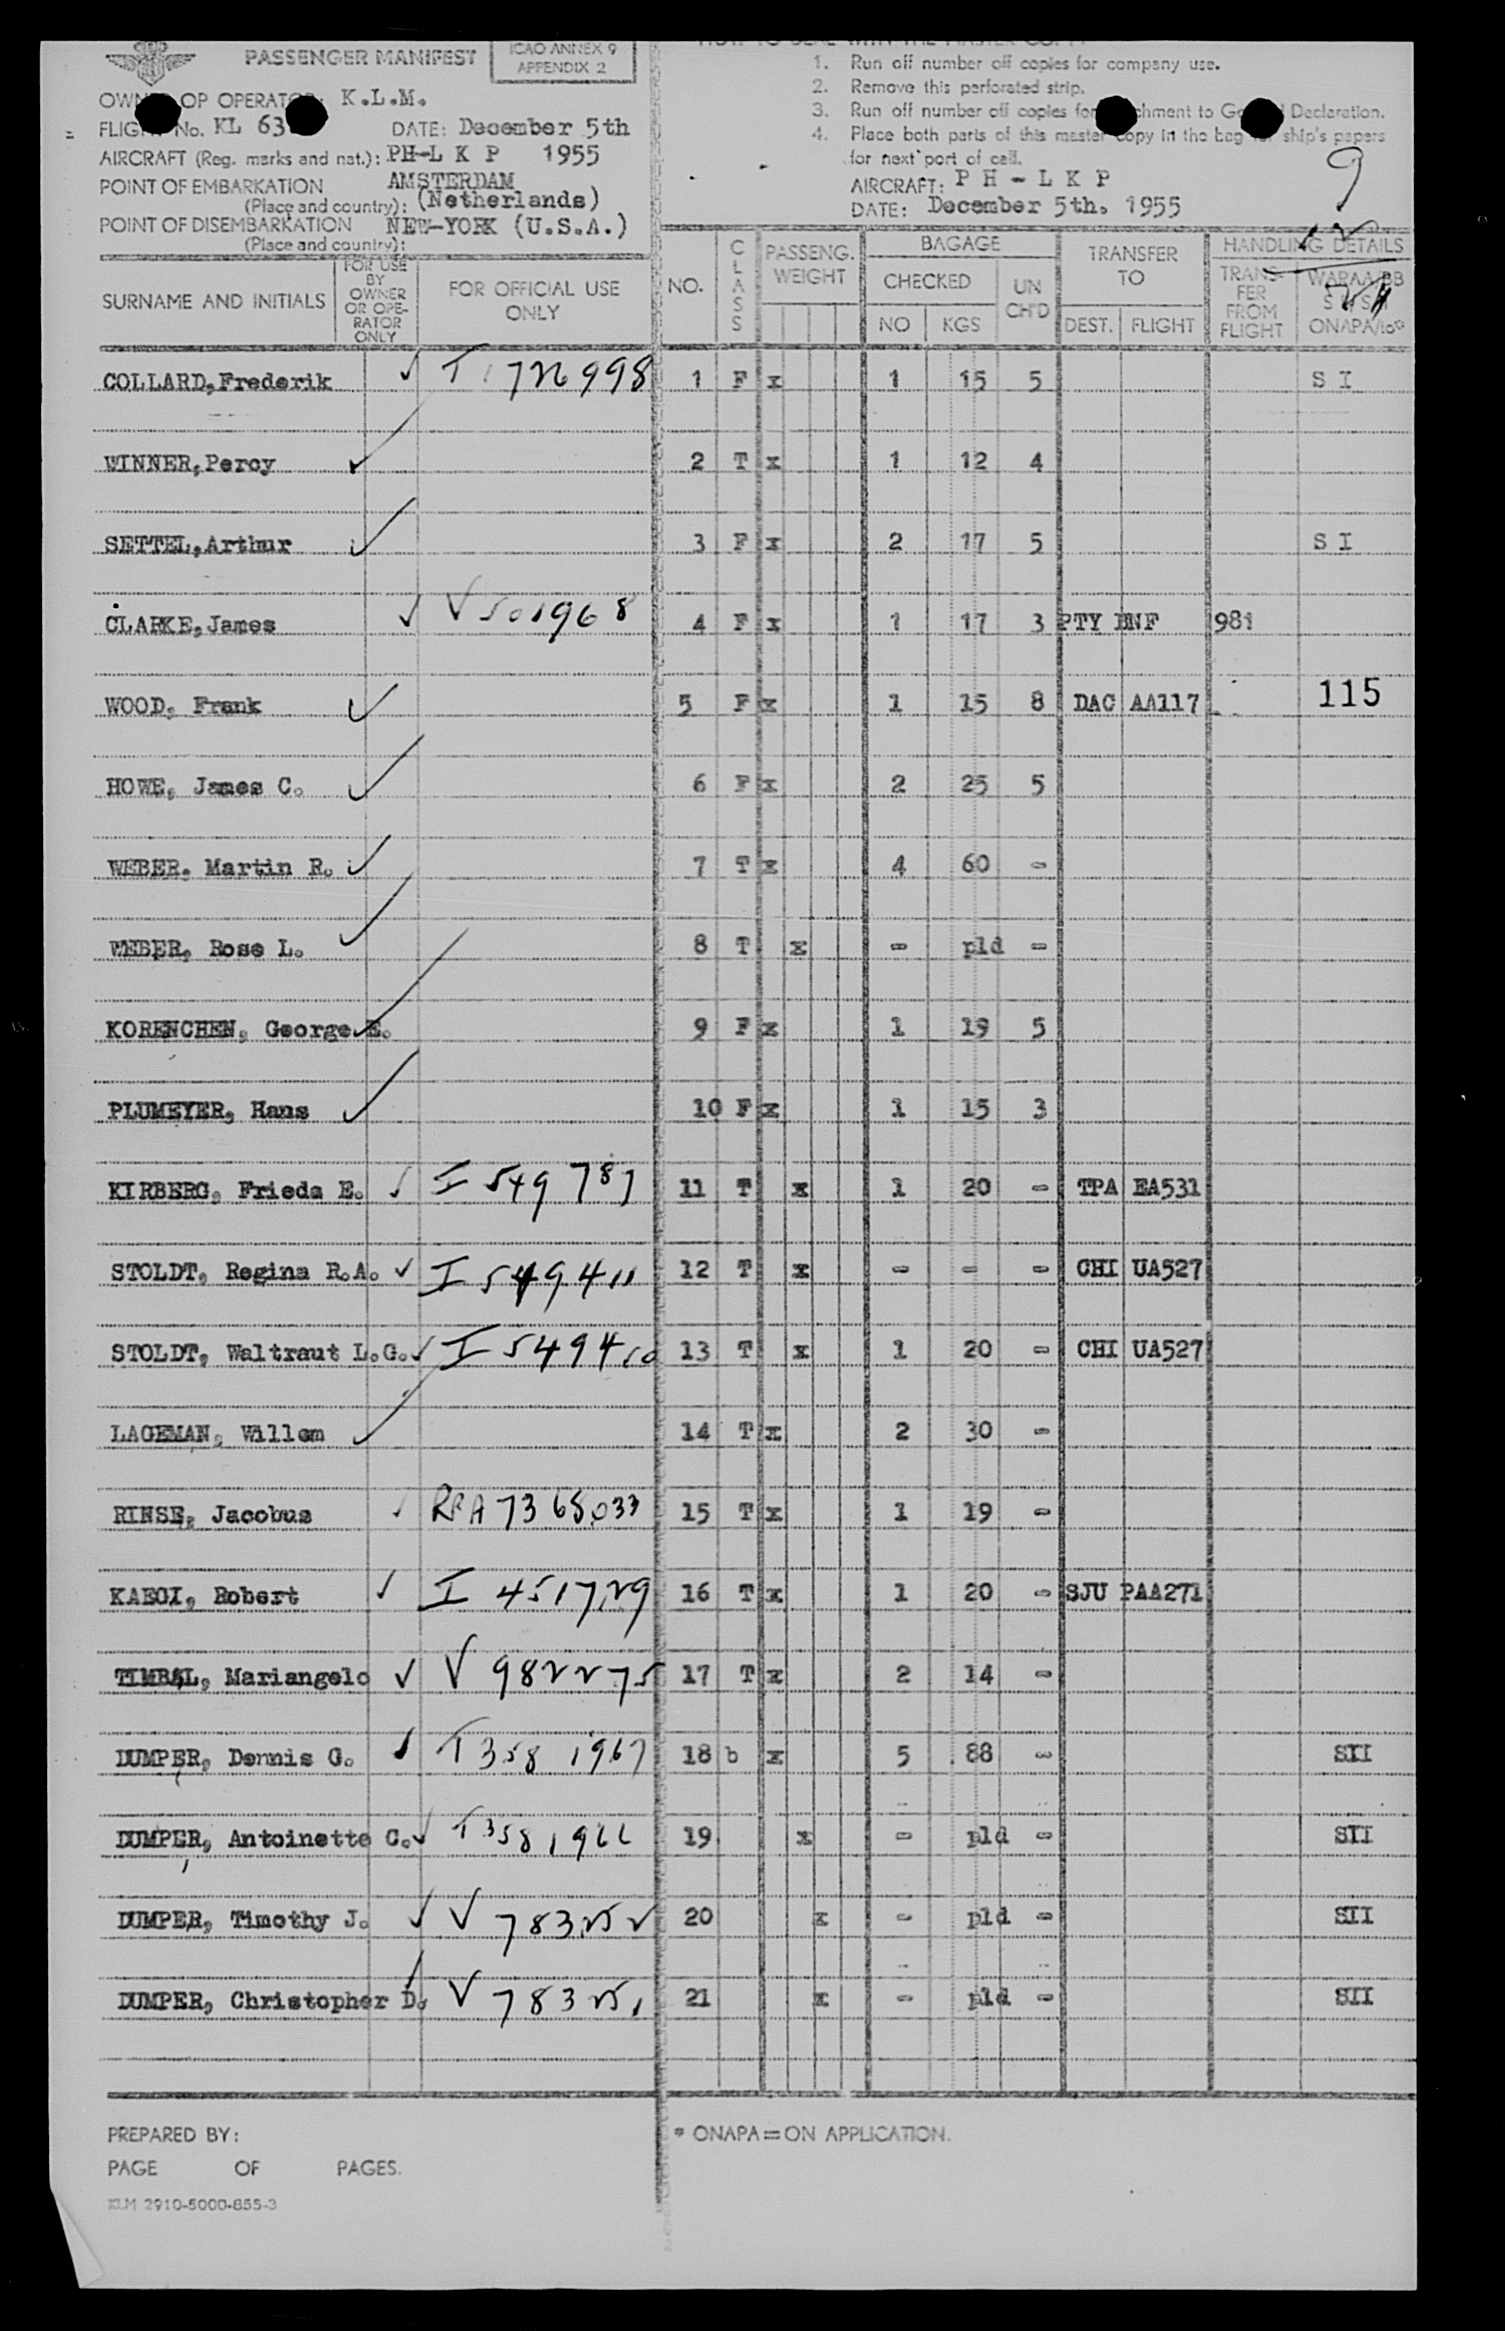 PASSENGER MANIFEST
ICAO ANNEX 9
APPENDIX 2
OP OPERATOR: K.L.M.
No. KL 63
DATE: December 5th
AIRCRAFT (Reg. marks and nat.): PH-L K P 1955
POINT OF EMBARKATION AMSTERDAM
(Place and country): (Netherlands)
POINT OF DISEMBARKATION NEW-YORK (U.S.A.)
(Place and country):
1. Run off number off copies for company use.
2. Remove this perforated strip.
3. Run off number off copies for chment to Declaration.
4. Place both parts of this master copy in the bag for ship's papers
for next port of call.
AIRCRAFT: P H - L K P
DATE: December 5th. 1955
9
SURNAME AND INITIALS
FOR USE
BY
OWNER
OR OPE-
RATOR
ONLY
FOR OFFICIAL USE
ONLY
NO.
CLASS
PASSENG.
WEIGHT
BAGAGE
CHECKED
NO KGS
UN
CH'D
TRANSFER
TO
DEST. FLIGHT
HANDLING DETAILS
TRANS-
FER
FROM
FLIGHT
ONAPA/
COLLARD, Frederik 1 F x 1 15 5 S I
WINNER, Percy 2 T x 1 12 4
SETTEL, Arthur 3 F x 2 17 5 S I
CLARKE, James V 501968 4 F x 1 17 3 PTY BNF 981
WOOD, Frank 5 F x 1 15 8 DAC AA117 115
HOWE, James C. 6 F x 2 25 5
WEBER, Martin R. 7 T x 4 60 -
WEBER, Rose L. 8 T x - pld -
KORENCHEN, George E. 9 F x 1 19 5
PLUMEYER, Hans 10 F x 1 15 3
KIRBERG, Frieda E. I 549787 11 T x 1 20 - TPA EA531
STOLDT, Regina R.A. I 549411 12 T x - - - CHI UA527
STOLDT, Waltraut L.G. I 549410 13 T x 1 20 - CHI UA527
LAGEMAN, Willem 14 T x 2 30 -
RINSE, Jacobus 15 T x 1 19 -
KAEGI, Robert I 451729 16 T x 1 20 - SJU PAA271
TIMBAL, Mariangelo V 982275 17 T x 2 14 -
DUMPER, Dennis G. T 3581967 18 b x 5 88 - SII
DUMPER, Antoinette C. T 3581966 19 x - pld - SII
DUMPER, Timothy J. V 783252 20 x - pld - SII
DUMPER, Christopher D. V 783251 21 x - pld - SII
PREPARED BY:
PAGE OF PAGES.
KLM 2910-5000-855-3
* ONAPA = ON APPLICATION.